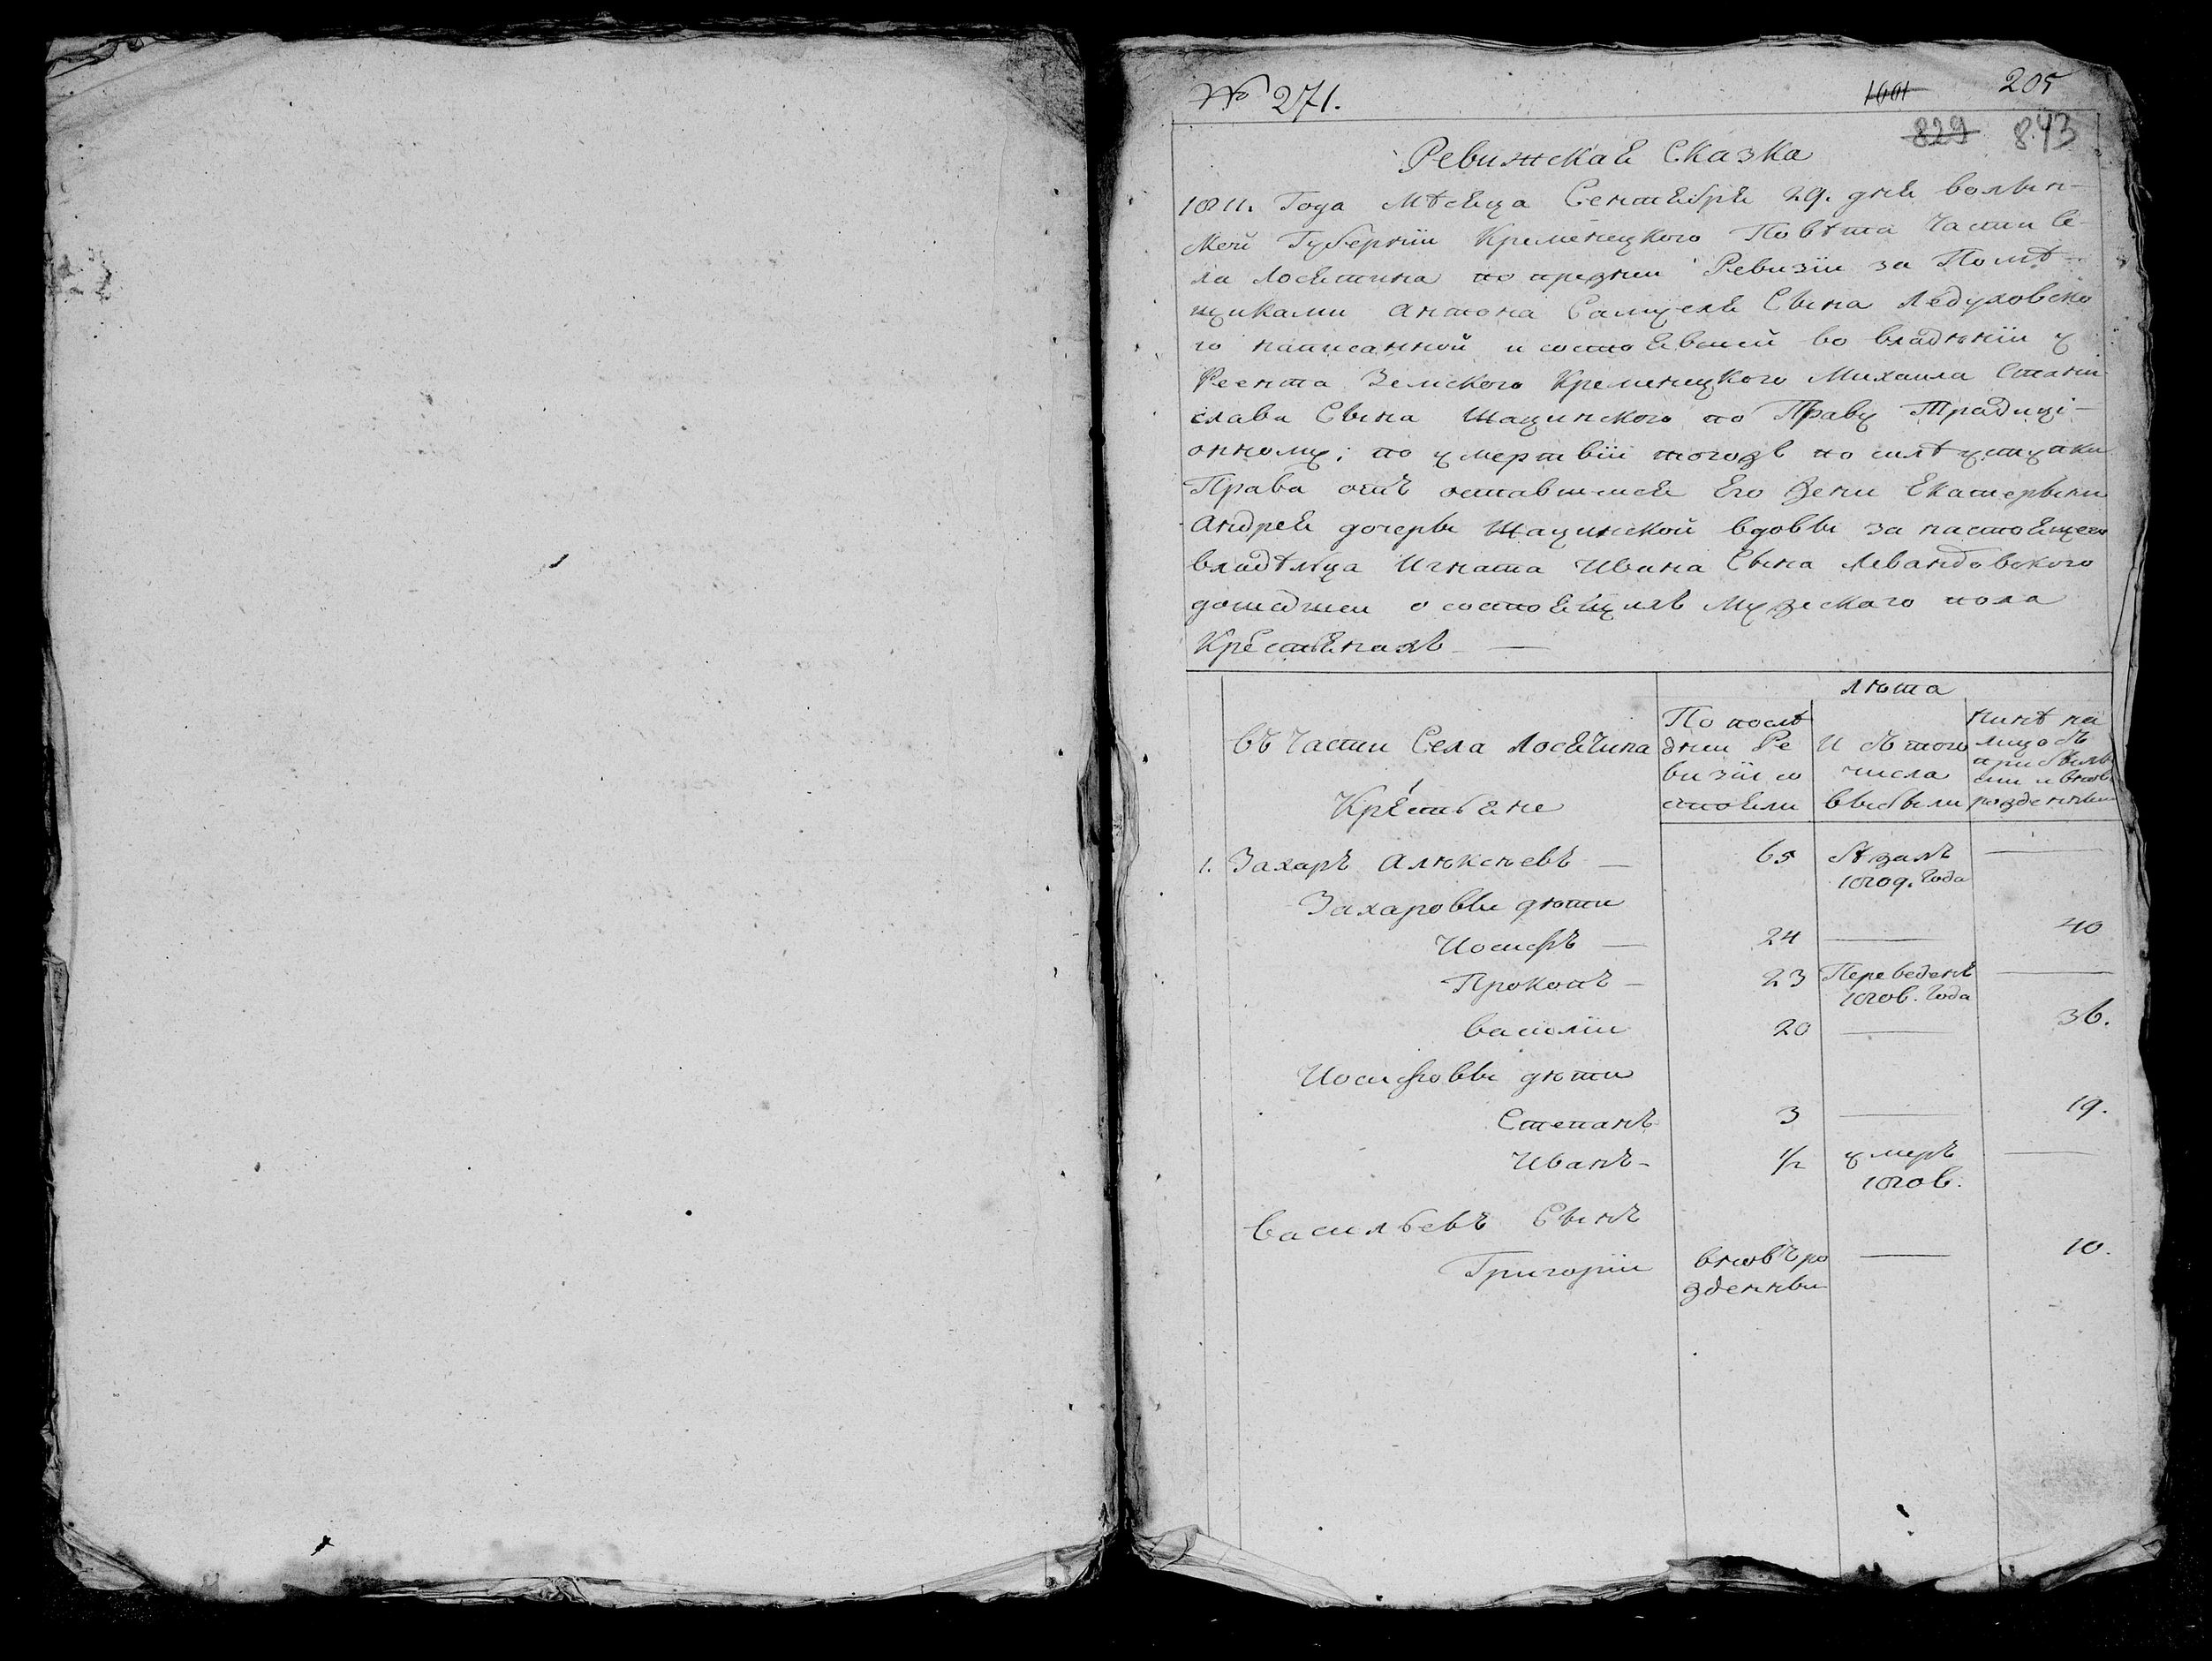 № 271.
1001 205
829 843
Ревижская Сказка
1811. Года Мѣсяца Сентября 29. дня волын-
ской Губерніи Кременецкого Повѣта Части се-
ла Лосятина по прежней Ревизіи за Помѣ-
щиками Антона Самуеля Сына Ледуховско
го написанной и состоявшей во владѣніи у
Реента Земского Кременецкого Михаила Стани
слава Сына по Праву Традиці-
онному; по умертвіи тогожъ по силѣ уступки
Права отъ оставшейся Его жени Екатерыни
Андрея дочеры вдовы за настоящего
владѣльца Игната Ивана Сына Левандовского
дошедшей о состоящихъ Мужеского пола
Крестьянахъ
лѣта
въ Части Села Лосячина
Крестьяне
По послѣ
дней Ре
визіи со
стояли
И съ того
числа
выбыли
Нинѣ на
лицо съ
прибылы
ми и вновь
рожденными
1. Захаръ Алѣксѣевъ — 65 бѣжалъ —
1809. Года
Захаровы дѣти
Иосифъ — 24 — 40
Прокопъ — 23 Переведенъ —
1806. Года
Василій 20 — 36.
Иосифовы дѣти
Степанъ 3 — 19.
Иванъ - 1/2 умеръ —
1806.
Васильевъ Сынъ
Григорій вновъ ро — 10.
жденны